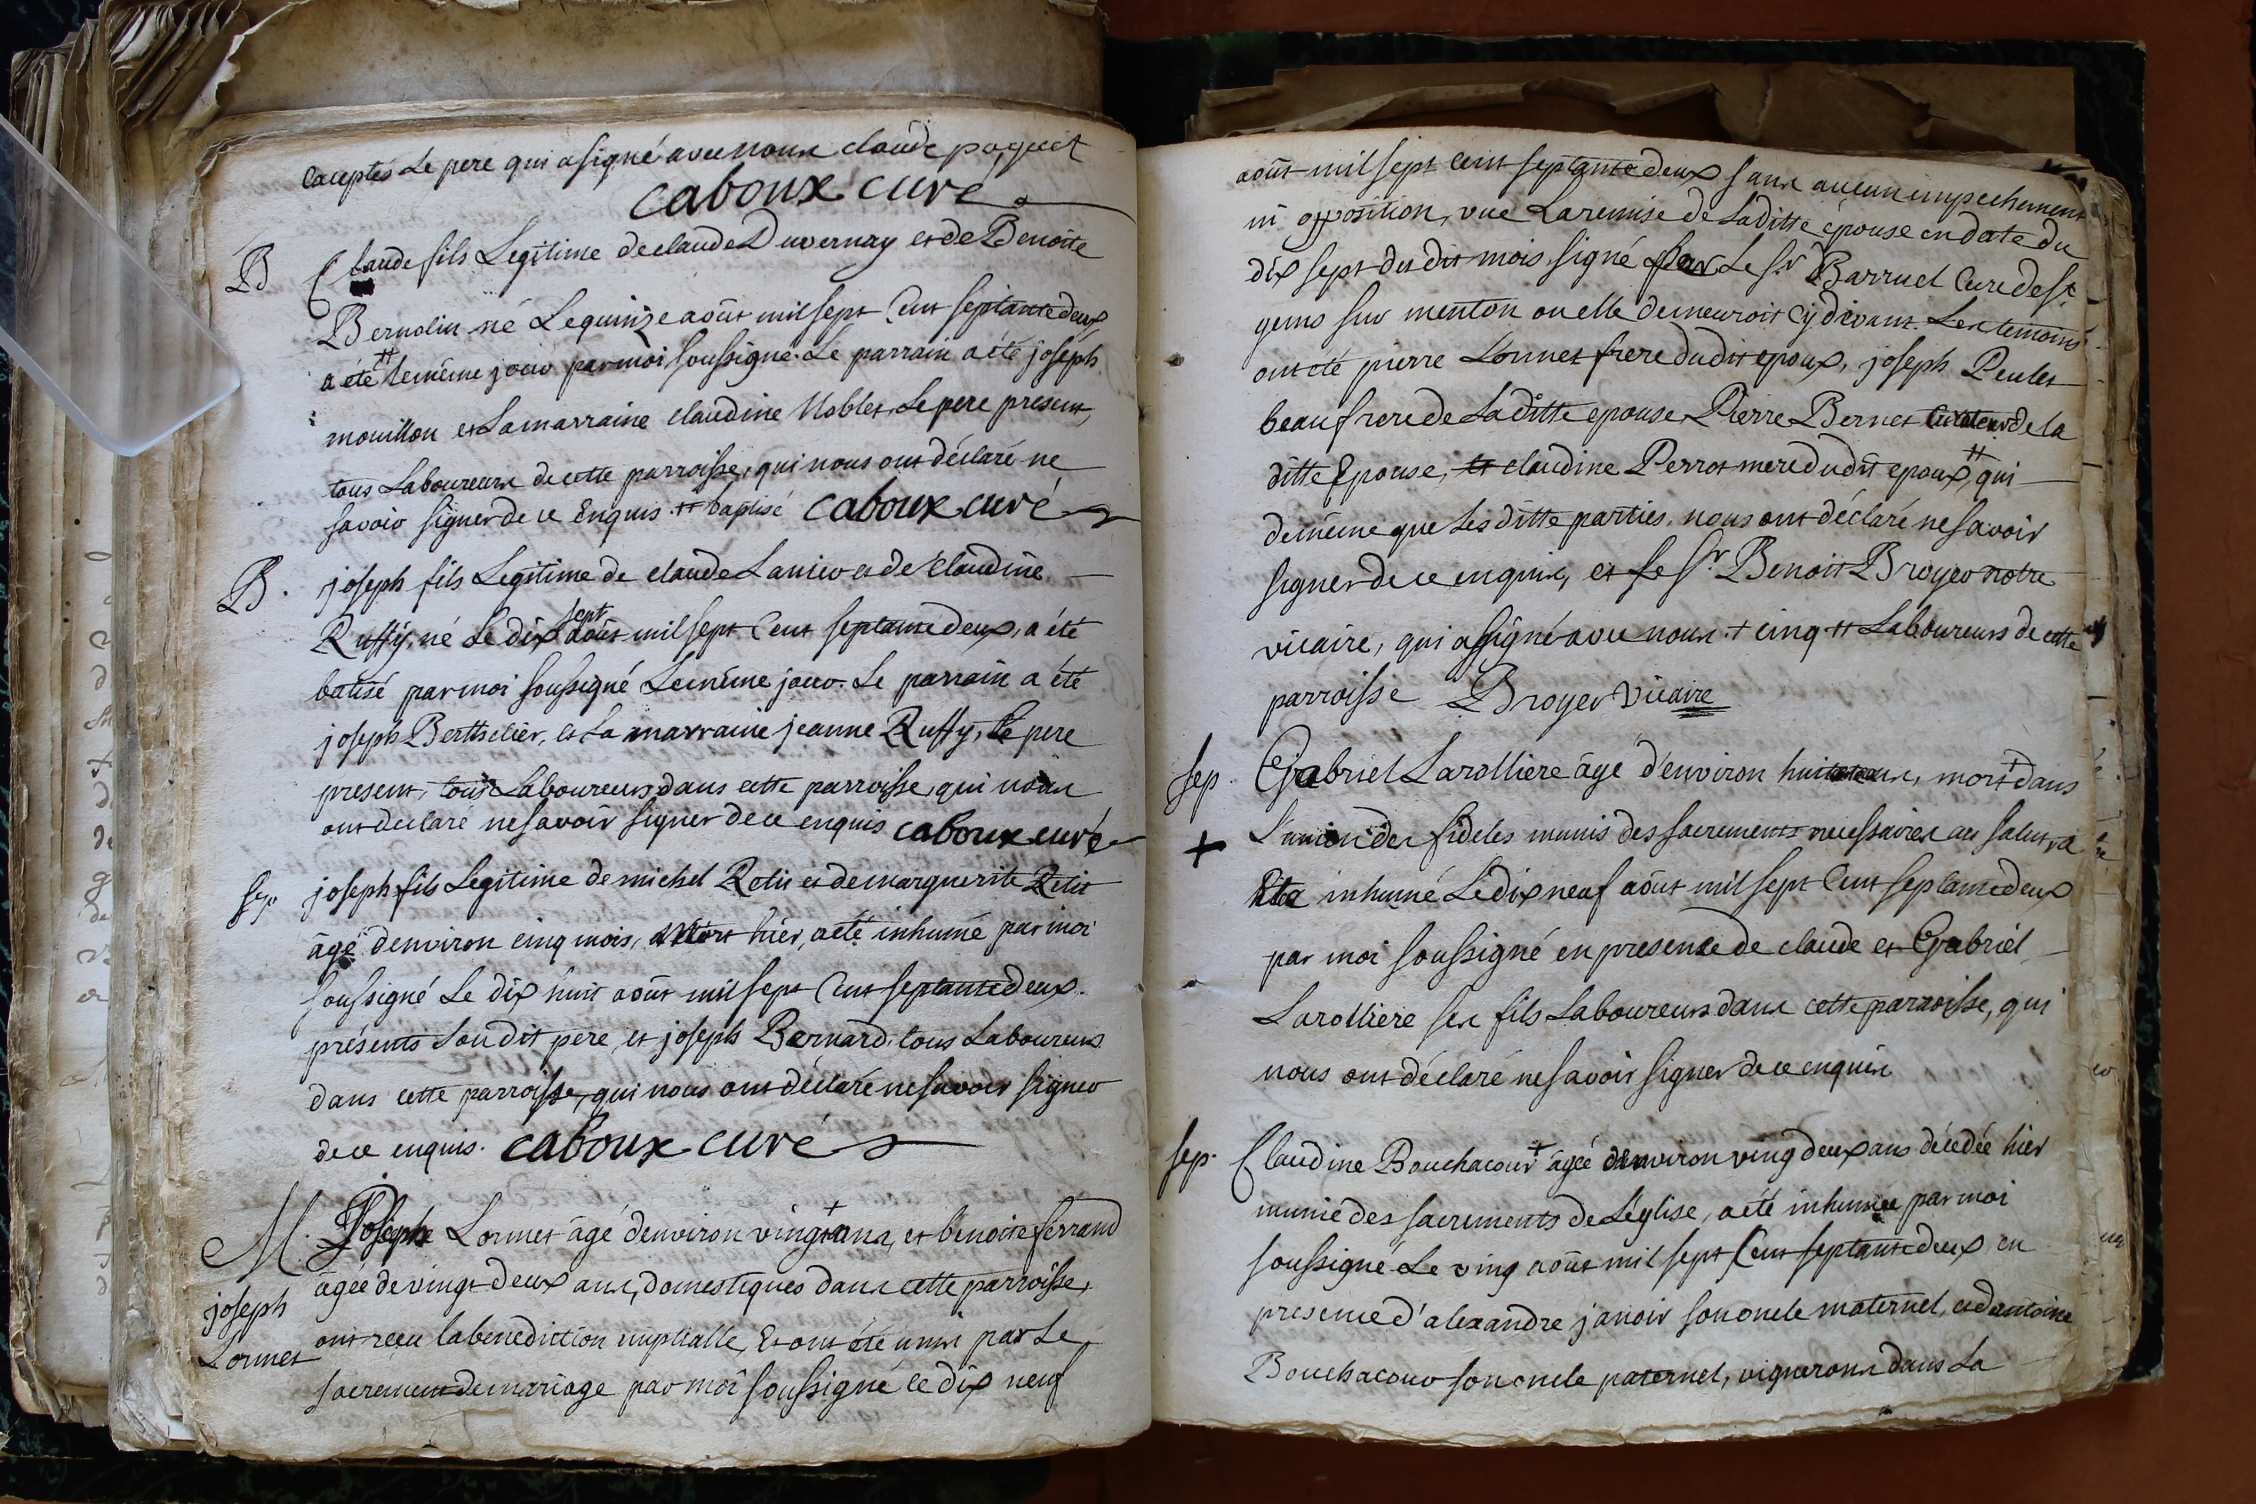 Exceptés Le pere qui a signé avec nous claude paquet
caboux curé
B Claude fils Legitime de claude Duvernay et de Benoite
Bernolin né Lequinze août mil sept Cent septante deux
a été # le même jour par moi soussigné. Le parrain a été joseph
mouillon et La marraine claudine Noblet, Le pere present,
tous Laboureurs de cette parroisse, qui nous ont déclaré ne
savoir signer de ce Enquis # baptisé caboux curé
B. joseph fils Legitime de claude Lanier et de Claudine
Ruffy, né Le dix sept août mil sept Cent septante deux, a été
batisé par moi soussigné Le même jour. Le parrain a été
joseph Berthelier, et La marraine jeanne Ruffy, Le pere
present, tous Laboureurs dans cette parroisse, qui nous
ont declaré ne savoir signer de ce enquis caboux curé
sep. joseph fils Legitime de michel Retis et de marguerite Retis
âgé d'environ cinq mois, mort hier, a été inhumé par moi
soussigné Le dix huit août mil sept Cent septante deux.
présents Son dit pere, et joseph Bernard, tous Laboureurs
dans cette parroisse, qui nous ont déclaré ne savoir signer
de ce enquis. caboux curé
M. Joseph Lornet âgé d'environ vingt + ans, et benoite ferrand
âgée de vingt deux ans, domestiques dans cette parroisse,
joseph
ont reçu la benediction nuptialle, Et ont été unis par Le
Lornet
sacrement de mariage par moi soussigné Le dix neuf
août mil sept cent septante deux sans aucun impechement
ni opposition, vue La remise de Laditte épouse en date du
dix sept du dit mois signé par Le Sr Barruel Curé de St
gems sur menton ou elle demeuroit cy devant. Les temoins
ont été pierre Lornet frere dudit epoux, joseph Peulet
beau frere de Laditte epouse, Pierre Bernet Curateur de la
ditte Epouse, et claudine Perrot mere dudit epoux, # qui
de même que Les ditte parties, nous ont déclaré ne savoir
signer de ce enquis, et Le Sr Benoit Broyer notre
vicaire, qui a signé avec nous. + cinq # Laboureurs de cette
parroisse Broyer vicaire
sep. Gabriel Larolliere âgé d'environ huitante ans, mort + dans
+ L'union des fideles munis des sacrements necessaires au salut, a
Eté inhumé Le dix neuf août mil sept Cent septante deux
par moi soussigné en presence de claude et Gabriel
Larolliere ses fils Laboureurs dans cette parroisse, qui
nous ont déclaré ne savoir signer de ce enquis
sep. Claudine Bouchacour + âgée d'environ vingt deux ans décedée hier
munie des sacrements de Léglise, a été inhumée par moi
soussigné Le ving août mil sept Cent septante deux, en
presence d'alexandre janoir son oncle maternel, et d'antoine
Bouchacour son oncle paternel, vignerons dans La